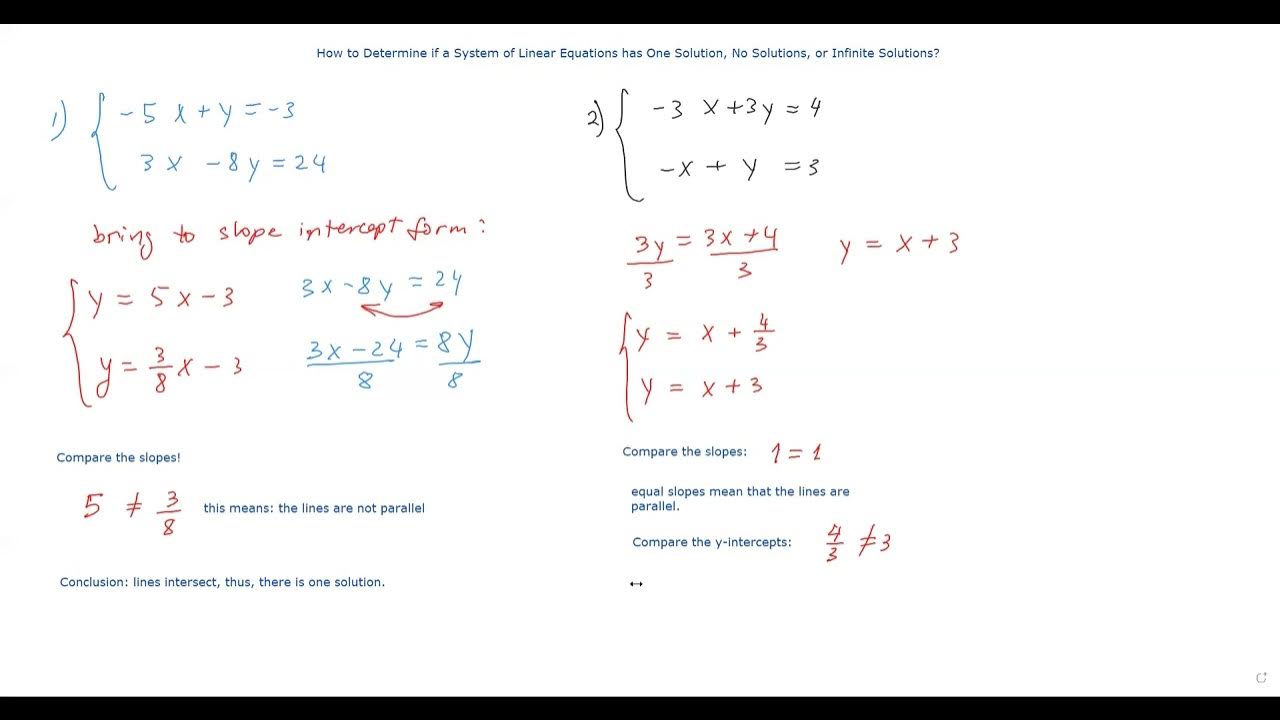 How to Determine if a System of Linear Equations has One Solution, No Solutions, or Infinite Solutions?
1) { -5x + y = -3
3x - 8y = 24
bring to slope intercept form:
{ y = 5x - 3
y = 3/8 x - 3
3x - 8y = 24
(3x - 24)/8 = 8y/8
Compare the slopes!
5 ≠ 3/8 this means: the lines are not parallel
Conclusion: lines intersect, thus, there is one solution.
2) { -3x + 3y = 4
-x + y = 3
3y/3 = (3x + 4)/3 y = x + 3
{ y = x + 4/3
y = x + 3
Compare the slopes: 1 = 1
equal slopes mean that the lines are
parallel.
Compare the y-intercepts: 4/3 ≠ 3